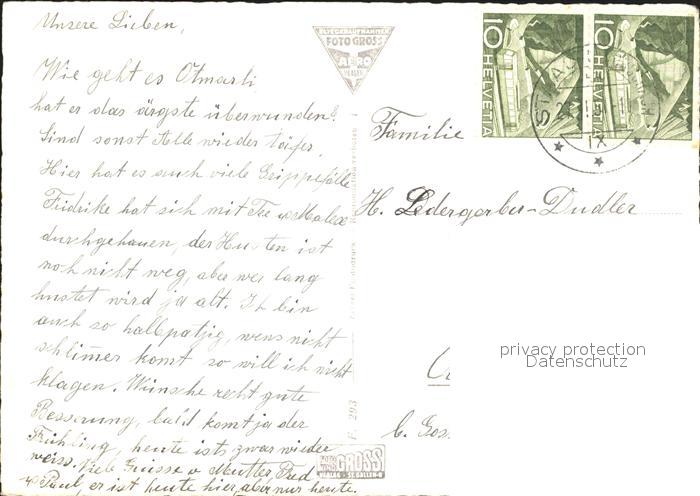 Unsere Lieben,
Wie geht es Otmarli
hat er das ärgste überwunden?
Sind sonst Alle wieder
Hier hat es auch viele Grippefälle
Fridrike hat sich mit Tee
durchgehauen, der Husten ist
noch nicht weg, aber wer lang
hustet wird ja alt. Ich bin
auch so halbpatzig, wens nicht
schlimer komt so will ich nicht
klagen. Wünsche recht gute
Besserung, bald komt ja der
Frühling, heute ist zwar wieder
weiss. Viele Grüsse v Mutter, Fred
u Paul, er ist heute hier, aber nur heute.
FOTO GROSS
AERO
F. 293
GROSS
10 HELVETIA
10 HELVETIA
IX
Familie
H. Ledergerber-Dudler
privacy protection
Datenschutz
b. Goss